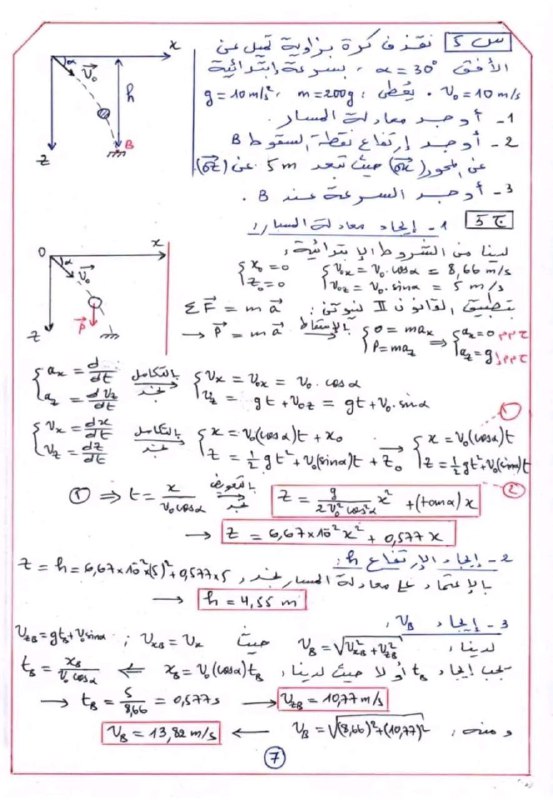 س 5 نقذف كرة بزاوية تميل عن
الأفق α = 30° ، بسرعة إبتدائية
v₀ = 10 m/s . يُعطى : m = 200g ، g = 10 m/s²
1- أوجد معادلة المسار .
2- أوجد إرتفاع نقطة السقوط B
عن المحور (ox) حيث تبعد 5 m عن (oz)
3- أوجد السرعة عند B .
x
α
v₀
h
z
B
ج 5 1- إيجاد معادلة المسار :
لدينا من الشروط الإبتدائية :
{x₀ = 0 {v₀ₓ = v₀.cosα = 8,66 m/s
{z₀ = 0 {v₀z = v₀.sinα = 5 m/s
بتطبيق القانون II لنيوتن : ΣF = ma
→ P = ma بالإسقاط {0 = maₓ ⇒ {aₓ = 0 ح م م
{P = maz {az = g ح م م
0
x
α
v₀
P
z
{aₓ = d/dt بالتكامل نجد {vₓ = v₀ₓ = v₀.cosα
{az = dvz/dt {vz = gt + v₀z = gt + v₀.sinα
{vₓ = dx/dt بالتكامل نجد {x = v₀(cosα)t + x₀ → {x = v₀(cosα)t ①
{vz = dz/dt {z = ½gt² + v₀(sinα)t + z₀ {z = ½gt² + v₀(sinα)t ②
① ⇒ t = x/(v₀cosα) بالتعويض نجد z = g/(2v₀²cos²α) x² + (tanα)x
→ z = 6,67×10⁻²x² + 0,577x
2- إيجاد الإرتفاع h :
بالإعتماد على معادلة المسار نجد : z = h = 6,67×10⁻²(5)² + 0,577×5
→ h = 4,55 m
3- إيجاد vB :
لدينا : vB = √(vxB² + vzB²) حيث vxB = vx ; vzB = gtB + v₀sinα
يجب إيجاد tB أولا حيث لدينا : xB = v₀(cosα)tB ⇐ tB = xB/(v₀cosα)
→ tB = 5/8,66 = 0,577s → vzB = 10,77 m/s
ومنه : vB = √((8,66)² + (10,77)²) ← vB = 13,82 m/s
7